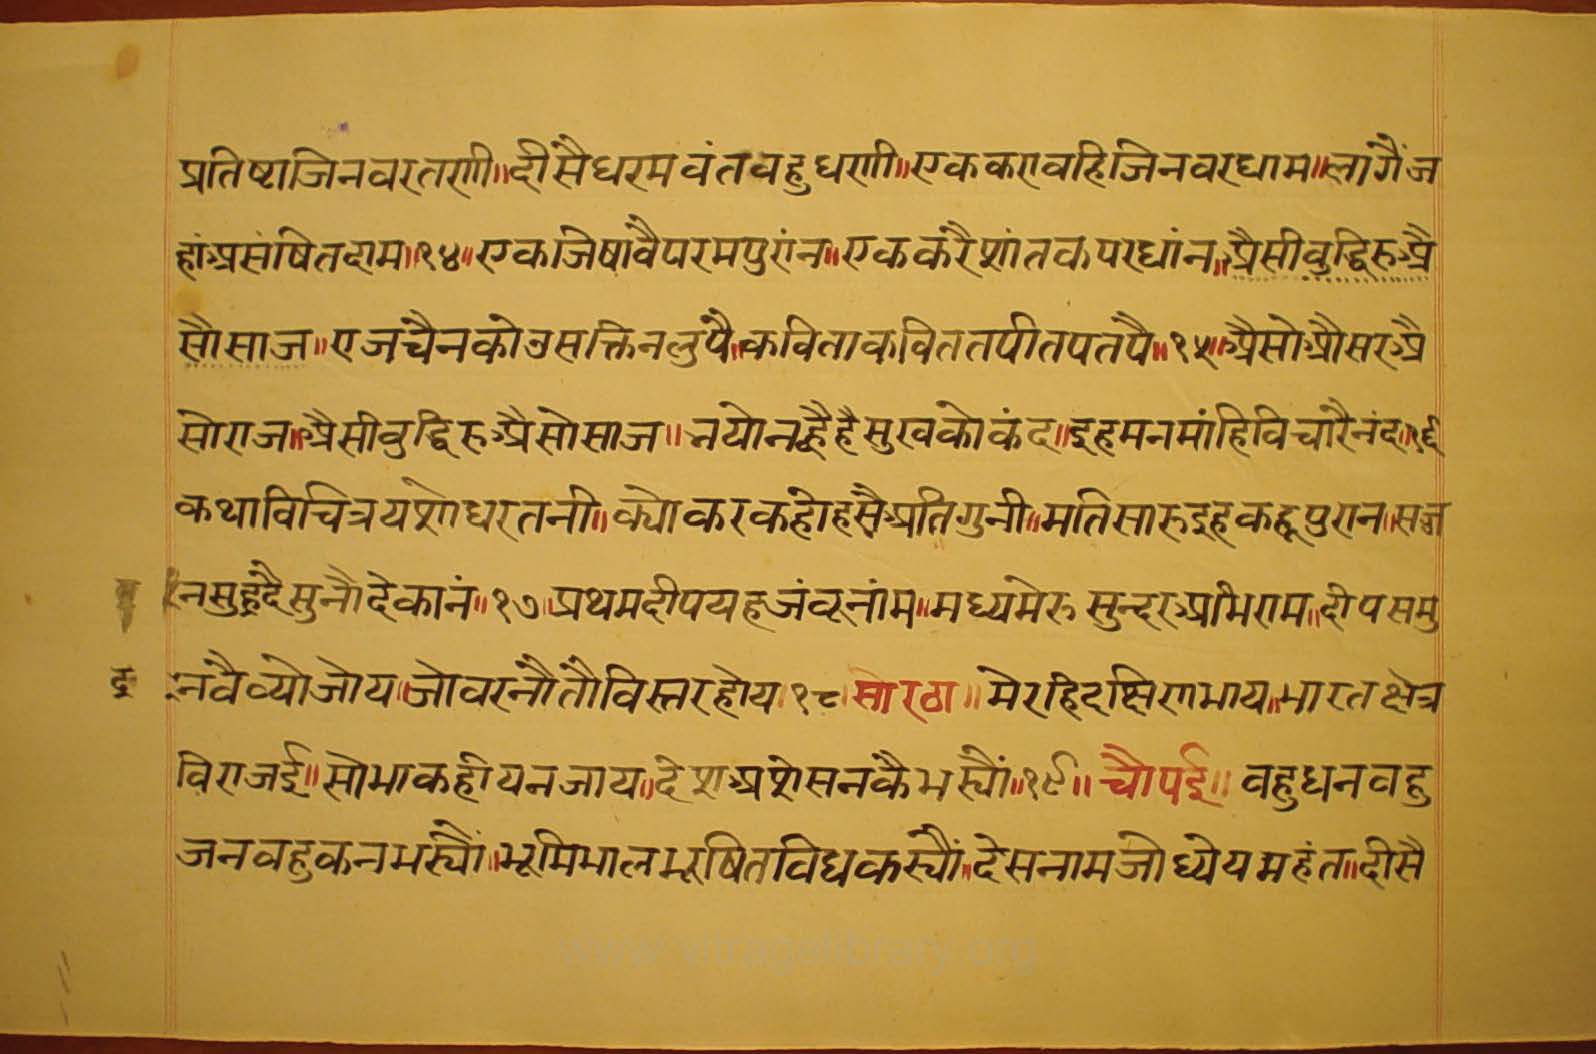 प्रतिष्टाजिनवरतरणी॥दीसैधरमवंतवहुधरणी॥एककरावहिजिनवरधाम॥लागैंज
हांअसंषितदाम॥१४॥एकजिषावैपरमपुरांन॥एककरैशांतकपरधांन॥अैसीवुद्धिरुअै
सौसाज॥एजचैनकोउसक्तिनलुपै॥कविताकविततपीतपतपै॥१५॥अैसोऔसरुअै
सोराज॥अैसीवुद्धिरुअैसोसाज॥नयोनह्वैहैसुखकोकंद॥इहमनमांहिविचारैनंद॥१६
कथाविचित्रयशोधरतनी॥क्योकरकहोहसैअतिगुनी॥मतिसारुइहकहूपुरान॥सज्ज
नसुहृदैसुनौदेकानं॥१७॥प्रथमदीपयहजंवूनांम॥मध्यमेरुसुन्दरअभिराम॥दीपसमु
द्र नवैव्योजोय॥जोवरनौतौविस्तरहोय॥१८॥सोरठा॥मेरहिदक्षिणभाय॥भारतक्षेत्र
विराजई॥सोभाकहीयनजाय॥देशअशेसनकैभस्यौं॥१९॥चौपई॥वहुधनवहु
जनवहुकनभस्यौं॥भूमिभालभूषितविधकस्यौं॥देसनामजोध्येयमहंत॥दीसै
www.vitragalibrary.org